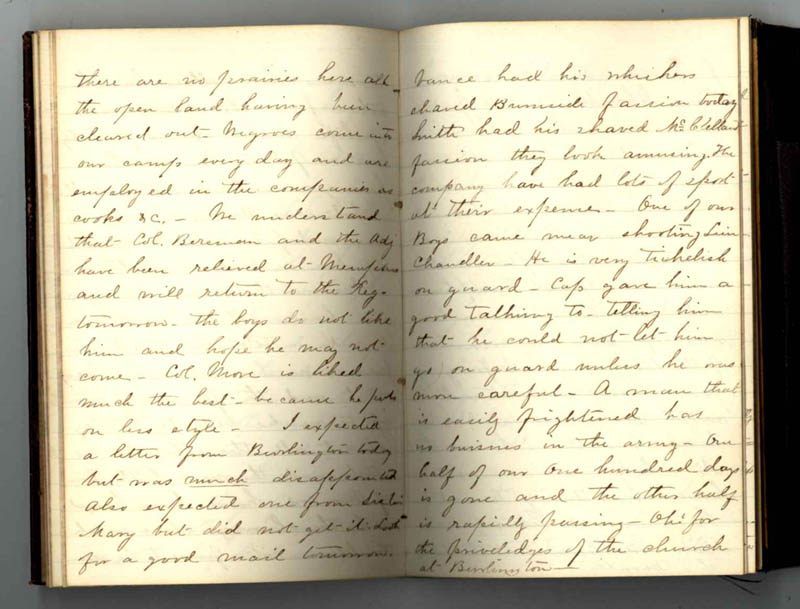 there are no prairies here all
the open land having been
cleared out - Negroes come into
our camp every day and are
employed in the companies as
cooks &c, - We understand
that Col. Bereman and the Adj
have been relieved at Memphis
and will return to the Reg.
tomorrow - the boys do not like
him and hope he may not
come - Col. More is liked
much the best - because he puts
on less style - I expected
a letter from Burlington today
but was much disappointed
Also expected one from Sister
Mary but did not get it. Look
for a good mail tomorrow.
Vance had his whiskers
shaved Burnside fassion today
Smith had his shaved McClelland
fassion they look amusing. The
company have had lots of sport
at their expense - One of our
Boys came near shooting Lieu
Chandler - He is very Tickelish
on guard - Cap gave him a
good Talking to - telling him
that he could not let him
go on guard unless he was
more careful - A man that
is easily frightened has
no buisnes in the army - One
half of our One hundred days
is gone and the other half
is rapidly passing - Oh! for
the priviledges of the church
at Burlington -